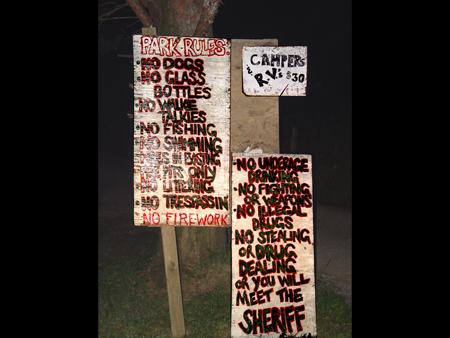 PARK RULES:
NO DOGS
NO GLASS
BOTTLES
NO WALKIE
TALKIES
NO FISHING
NO SWIMMING
IN EXISTING
PITS ONLY
NO LITTERING
NO TRESPASSIN
NO FIREWORK
CAMPERS
& R.V.'s $30
NO UNDERAGE
DRINKING
NO FIGHTING
OR WEAPONS
NO ILLEGAL
DRUGS
NO STEALING
OR DRUG
DEALING
OR YOU WILL
MEET THE
SHERIFF